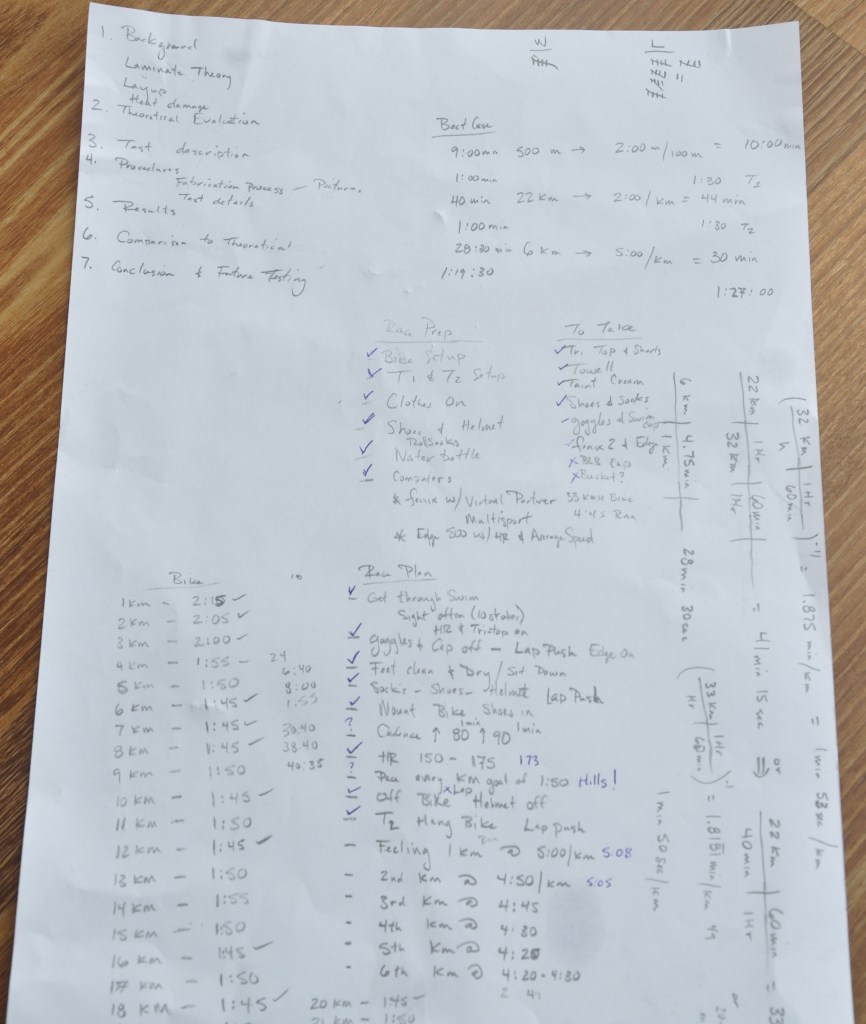 1. Background
Laminate Theory
Layup
Heat damage
2. Theoretical Evaluation
3. Test description
4. Procedures
Fabrication Process - Pictures
Test details
5. Results
6. Comparison to Theoretical
7. Conclusion & Future Testing
W
L
Best Case
9:00min 500 m → 2:00 m/100m = 10:00min
1:00min 1:30 T2
40 min 22 Km → 2:00/km = 44 min
1:00min 1:30 T2
28:30 min 6 Km → 5:00/km = 30 min
1:19:30
1:27:00
Race Prep
✓ Bike Setup
✓ T1 & T2 Setup
✓ Clothes On
✓ Shoes & Helmet
Roll Socks
✓ Water bottle
✓ Computers
* fenix w/ Virtual Partner 33 KmH Bike
Multisport 4:45 Run
* Edge 500 w/ HR & Average Speed
To Take
✓ Tri Top & Shorts
✓ Towell
✓ Taint Cream
✓ Shoes & Socks
goggles & Swim Cap
fenix 2 & Edge
x Cap
x Bucket?
Bike
1 Km - 2:15 ✓
2 Km - 2:05 ✓
3 Km - 2:00 ✓
4 Km - 1:55 -
5 Km - 1:50
6 Km - 1:45 ✓
7 Km - 1:45 ✓
8 Km - 1:45 ✓
9 Km - 1:50
10 Km - 1:45 ✓
11 Km - 1:50
12 Km - 1:45 ✓
13 Km - 1:50
14 Km - 1:55
15 Km - 1:50
16 Km - 1:45 ✓
17 Km - 1:50
18 KM - 1:45 ✓
20 Km - 1:45 ✓
21 Km - 1:50
10
24
6:40
9:00
1:55
30:40
38:40
40:35
Race Plan
✓ Get through Swim
Sight often (10 strokes)
HR & Tri top on
✓ goggles & Cap off - Lap Push Edge On
✓ Feet clean & Dry / Sit Down
✓ Socks - Shoes - Helmet Lap Push
✓ Mount Bike Shoes in
? Cadence ↑ 80 1min ↑ 90 1min
✓ HR 150 - 175 173
? Pace every Km goal of 1:50 Hills!
✓ Off Bike x Lap Helmet off
✓ T2 Hang Bike Lap Push
- Feeling 1 km @ 5:00/km 5:08
- 2nd Km @ 4:50/km 5:05
- 3rd Km @ 4:45
- 4th Km @ 4:30
- 5th Km @ 4:25
- 6th Km @ 4:20-4:30
6 Km | 4.75min
1 Km
28 min 30 sec
22 Km | 1 Hr | 60 min
32 Km | 1 Hr
= 41 min 15 sec
or
⇒ 22 Km | 60 min
40 min | 1 Hr
= 33
(32 Km | 1 Hr
h | 60 min)^-1 = 1.875 min/km = 1 min 53 sec/km
(33 Km | 1 Hr
Hr | 60 min)^-1 = 1.8181 min/km
1 min 50 sec/km
or